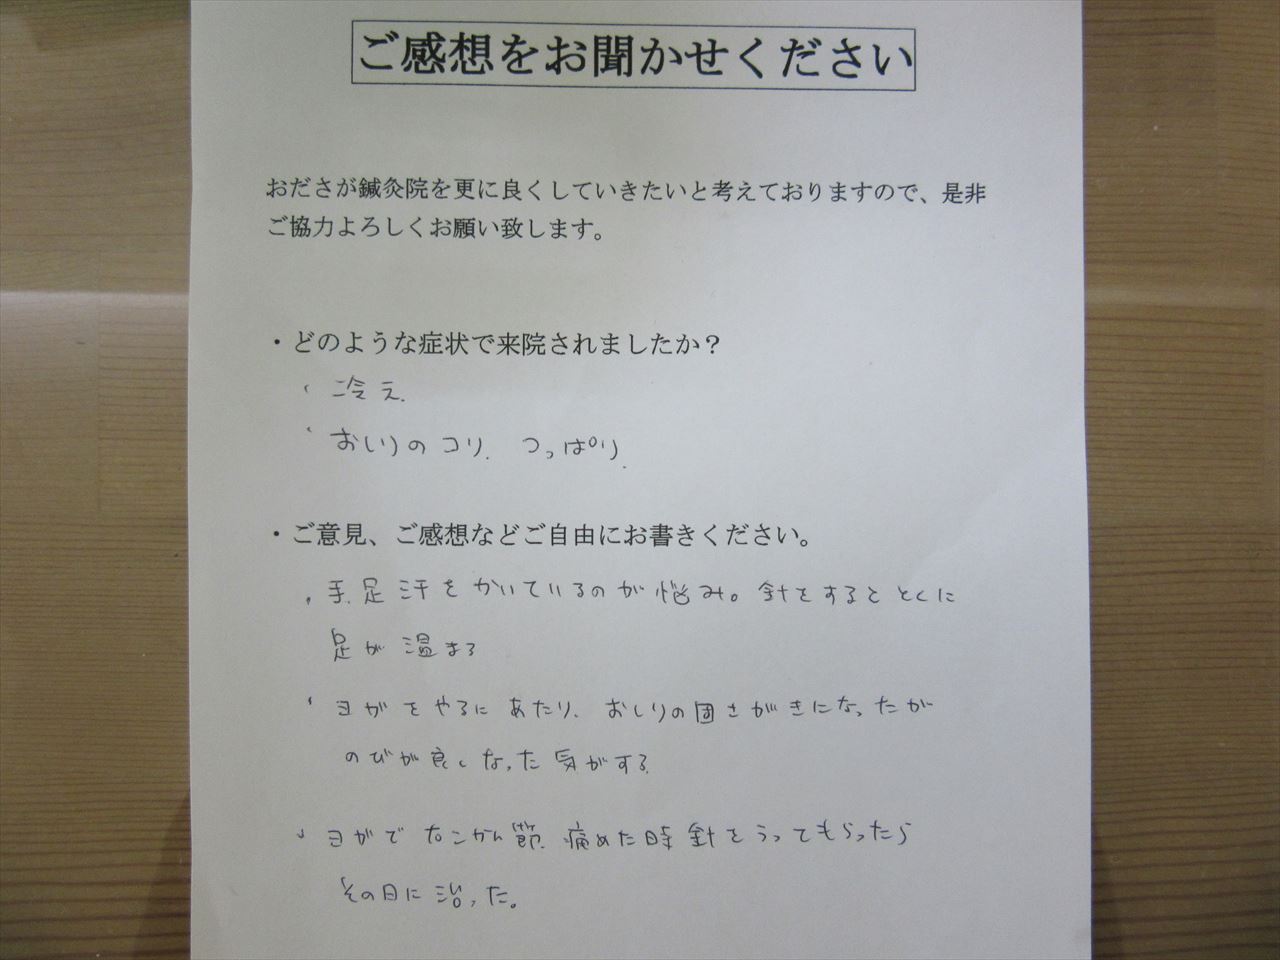 ご感想をお聞かせください
おださが鍼灸院を更に良くしていきたいと考えておりますので、是非
ご協力よろしくお願い致します。
・どのような症状で来院されましたか？
・冷え.
・おしりのコリ. つっぱり.
・ご意見、ご感想などご自由にお書きください。
・手.足 汗をかいているのが悩み。針をするととくに
足が温まる
・ヨガをやるにあたり. おしりの固さがきになったが
のびが良くなった気がする.
・ヨガで 右こかん節. 痛めた時 針をうってもらったら
その日に治った。